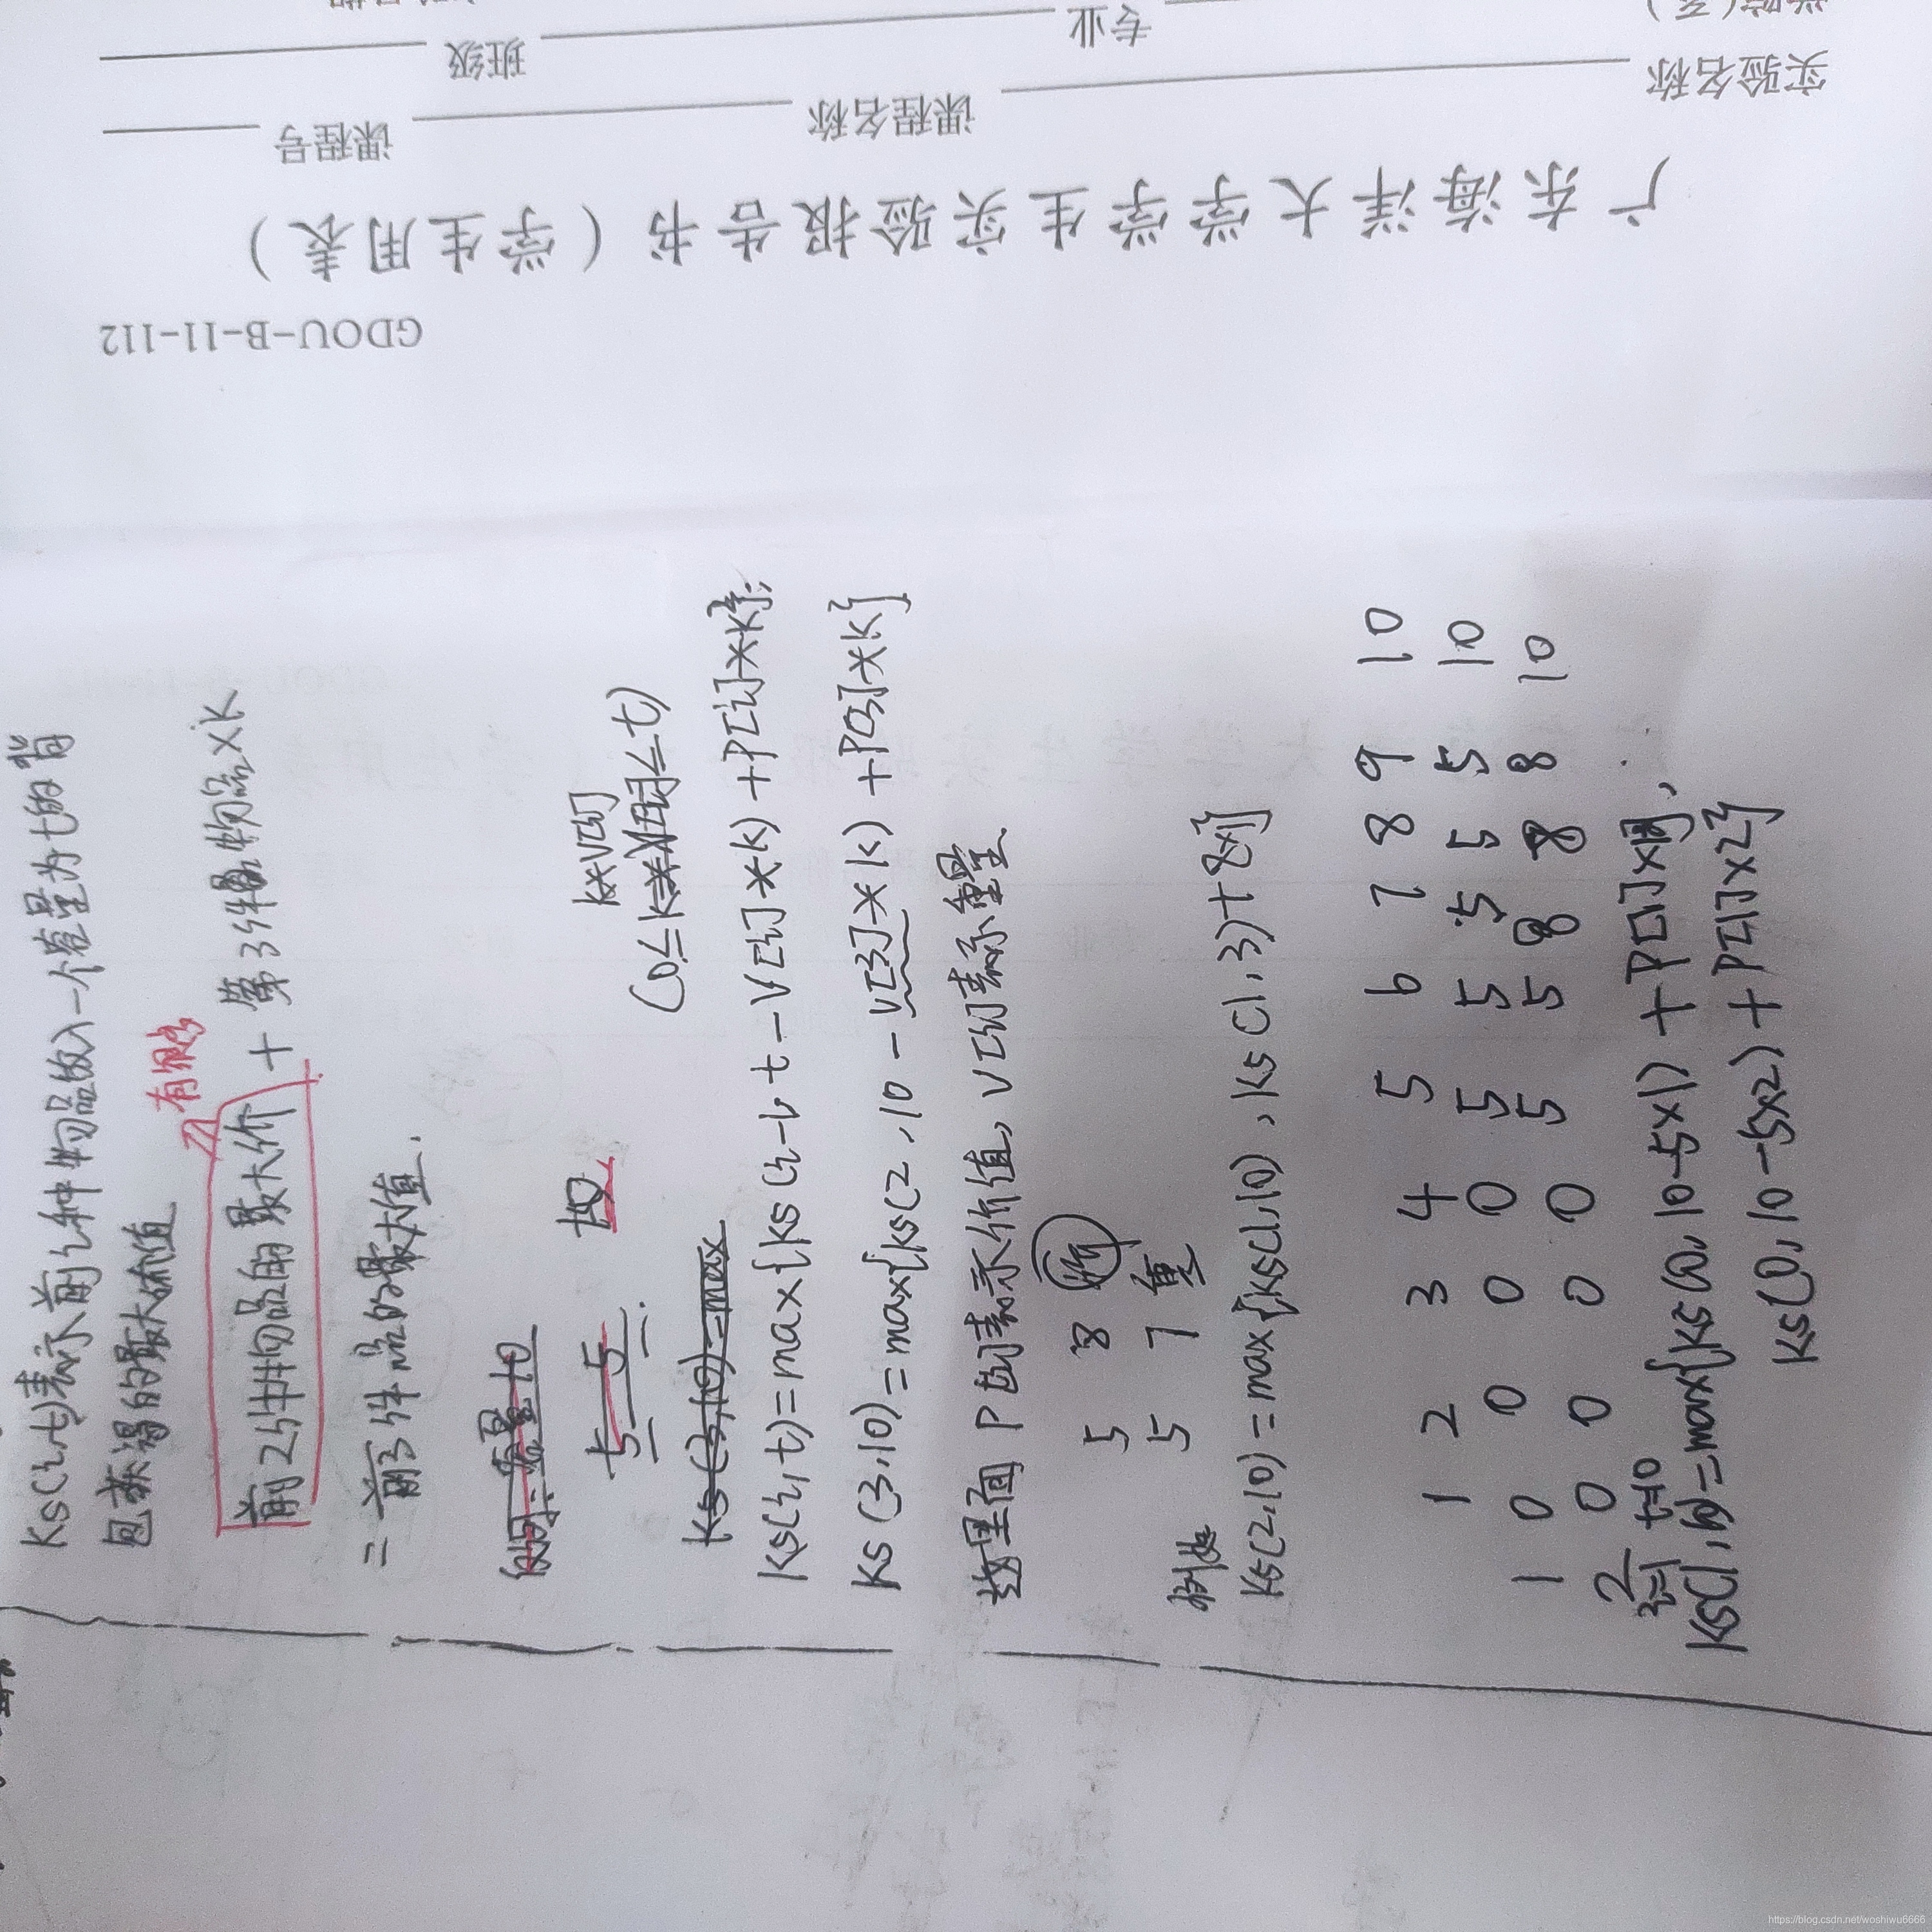 GDOU-B-11-112
广东海洋大学学生实验报告书（学生用表）
实验名称 课程名称 课程号
学院(系) 专业 班级
Ks(i,t)表示前i种物品放入一个容量为t的背
包获得的最大价值
有限
前2件物品的最大价 + 第3件物品×K
=前3件品的最大值.
容量10
5 5
K*V[i]
(0≤K*V[i]≤t)
Ks(3,10)=max
Ks(i,t)=max{Ks(i-1, t-V[i]*K)+P[i]*K};
Ks(3,10)=max{Ks(2,10-V[3]*K)+P[3]*K}
数里面 P[i]表示价值, V[i]表示重量
5 8 价
5 7 重
Ks(2,10)=max{Ks(1,10), Ks(1,3)+8×1}
1 2 3 4 5 6 7 8 9 10
1 0 0 0 0 5 5 5 5 5 10
2 0 0 0 0 5 5 8 8 8 10
i=1 t=10
Ks(1,10)=max{Ks(0,10-5×1)+P[1]×1,
Ks(0,10-5×2)+P[1]×2}
https://blog.csdn.net/woshiwu6666